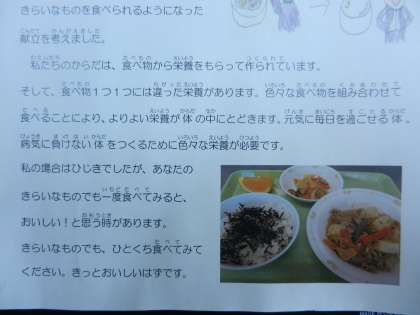 きらいなものを食べられるようになった
献立を考えました。
私たちのからだは、食べ物から栄養をもらって作られています。
そして、食べ物１つ１つには違った栄養があります。色々な食べ物を組み合わせて
食べることにより、よりよい栄養が体の中にとどきます。元気に毎日を過ごせる体、
病気に負けない体をつくるために色々な栄養が必要です。
私の場合はひじきでしたが、あなたの
きらいなものでも一度食べてみると、
おいしい！と思う時があります。
きらいなものでも、ひとくち食べてみて
ください。きっとおいしいはずです。